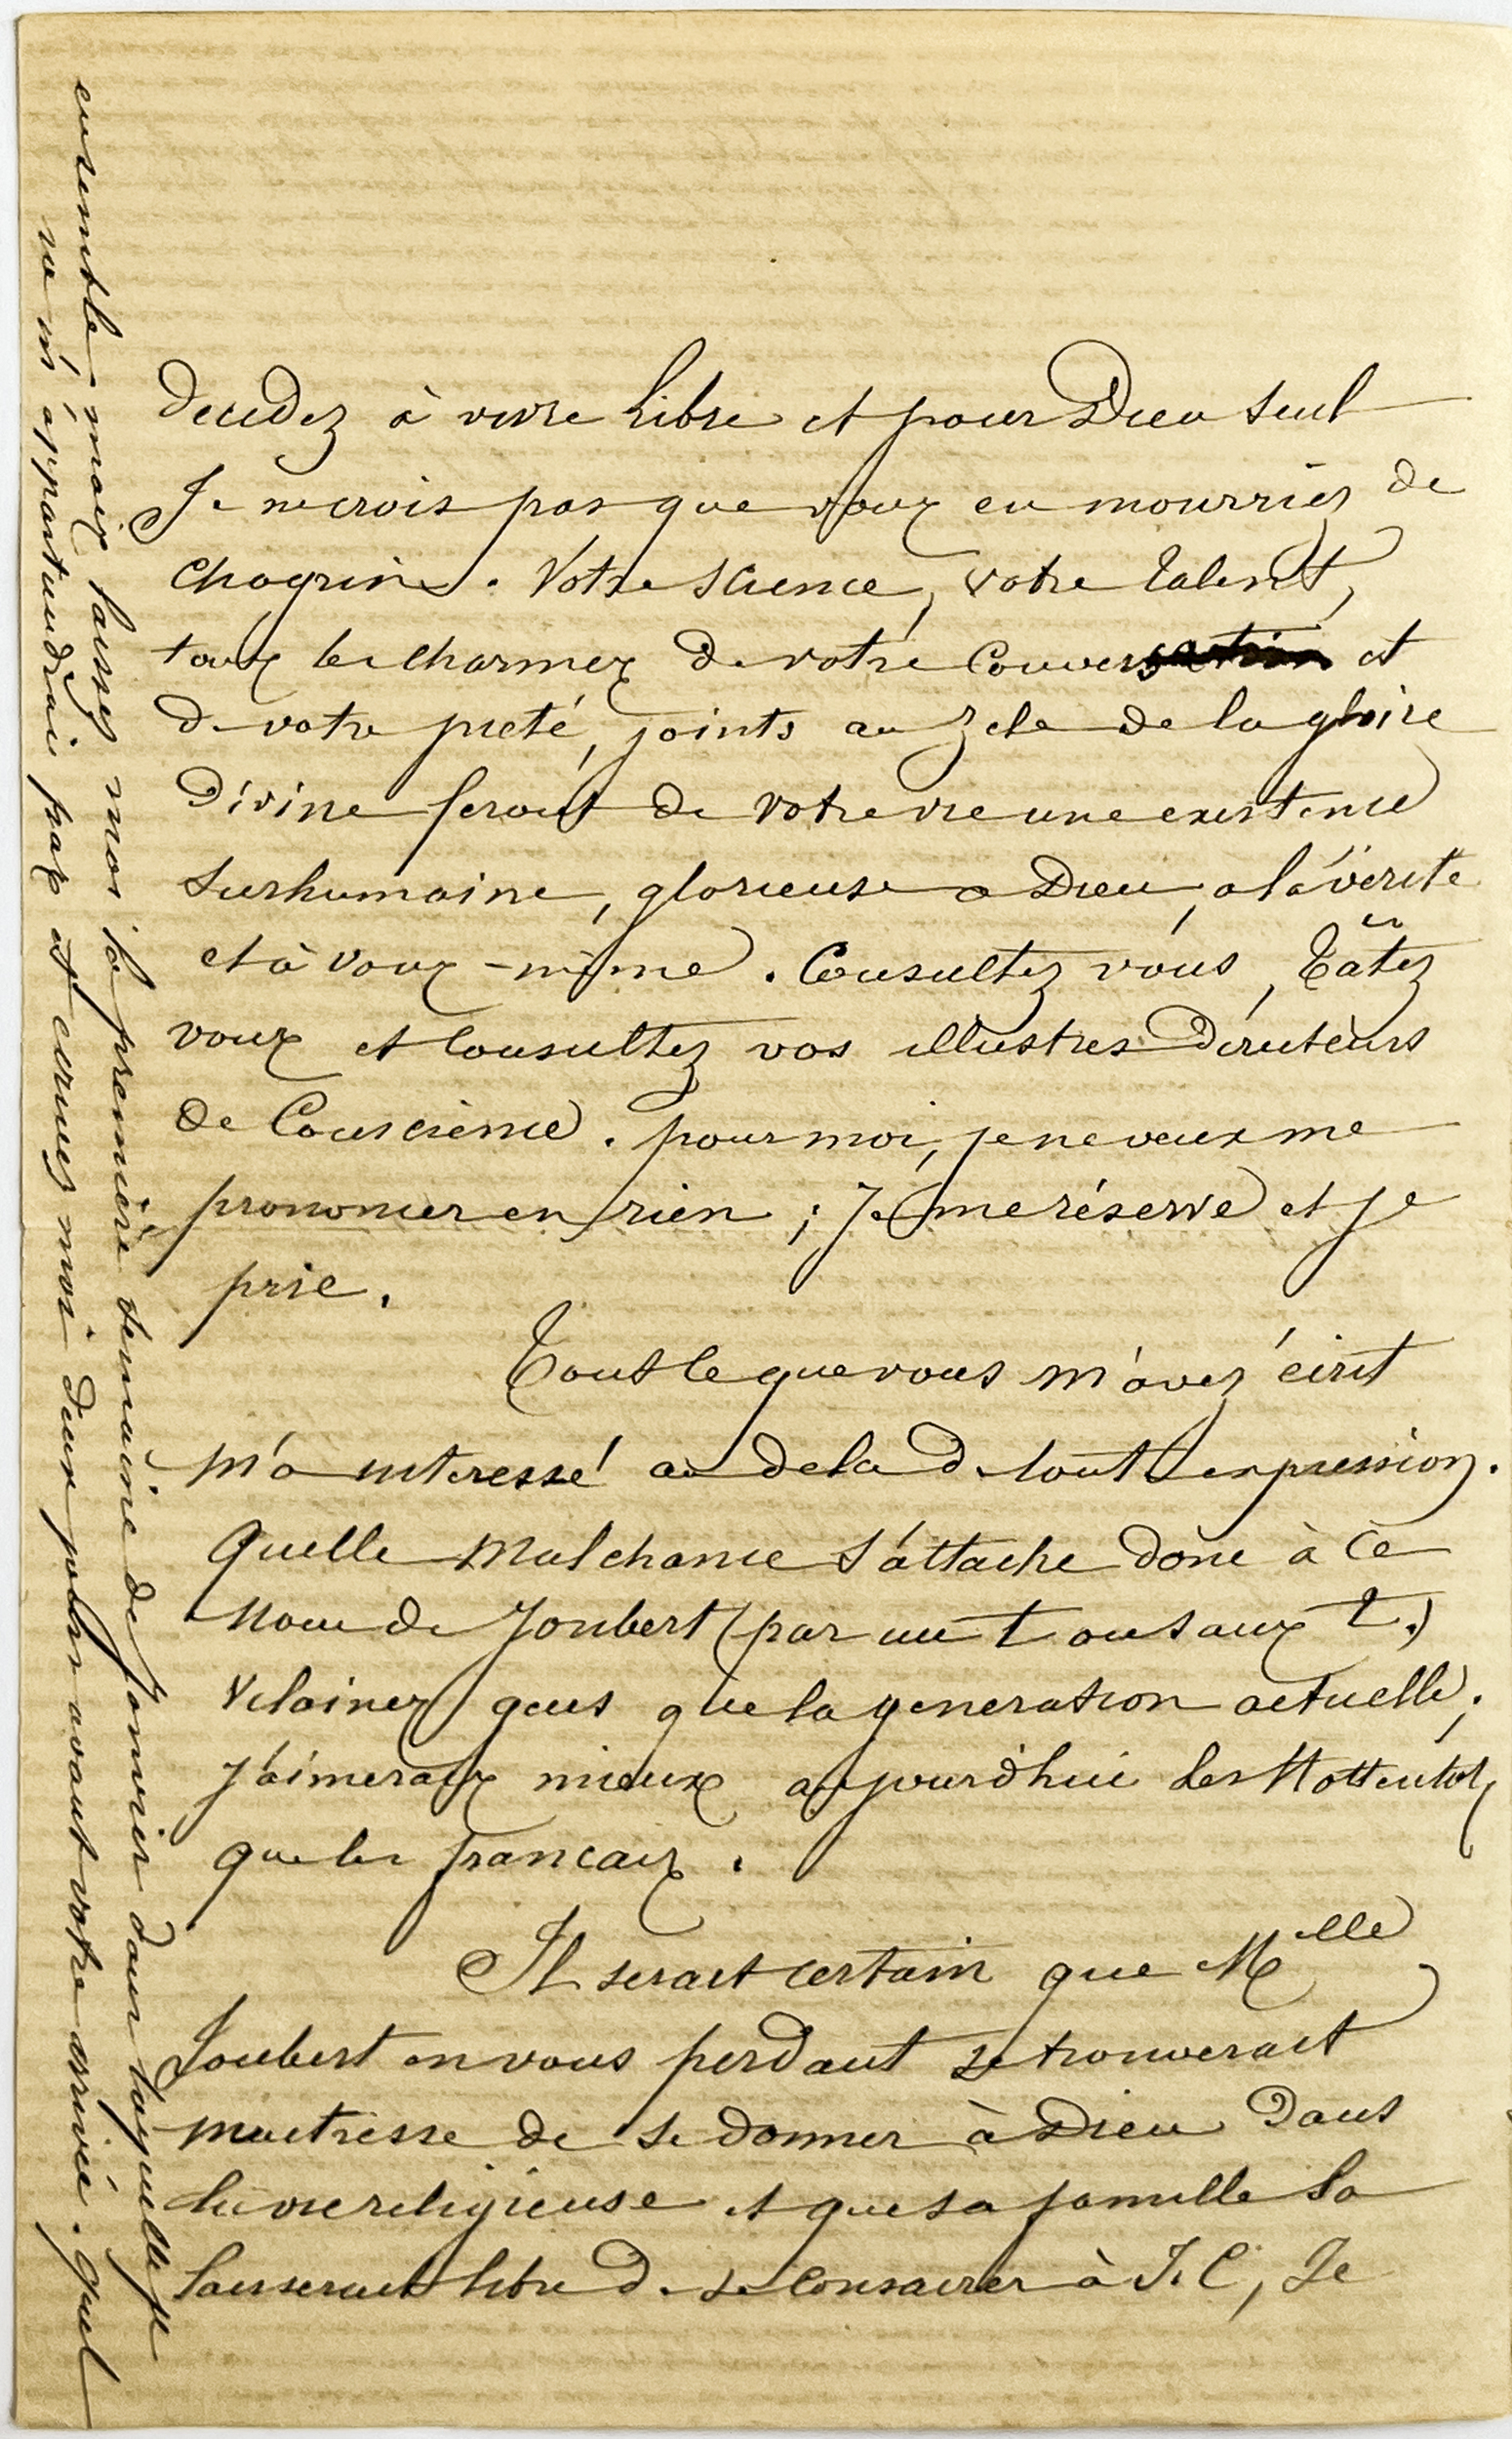 decidez à vivre libre et pour Dieu seul
Je ne crois pas que vous en mourriez de
chagrin. Votre science, votre talent,
tous les charmes de votre conversation et
de votre pieté, joints au zele de la gloire
Divine feront de votre vie une existence
surhumaine, glorieuse a Dieu, a la vérité
et à vous-même. Consultez vous, Tâtez
vous et consultez vos illustres Directeurs
de Conscience. pour moi, je ne veux me
prononcer en rien ; Je me réserve et je
prie.
Tout ce que vous m'avez écrit
m'a interessé au dela de toute expression.
Quelle malchance s'attache donc à ce
nom de Joubert (par un t ou s aux t.)
Vilaines gens que la generation actuelle ;
J'aimerais mieux aujourd'hui les Hottentots
que les francais.
Il serait certain que Melle
Joubert en vous perdant se trouverait
maitresse de se donner à Dieu dans
la vie religieuse et que sa famille la
laisserait libre de se consacrer à J. C, Je
ensemble mais laissez moi la première semaine de Janvier dans laquelle je
ne m'appartiendrai pas et ecrivez moi deux jours avant votre arrivée. Quel